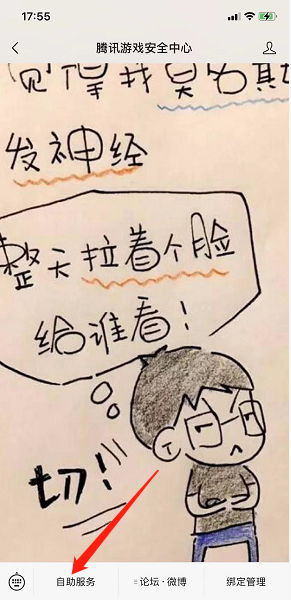 17:55
腾讯游戏安全中心
觉得我莫名其
发神经
整天拉着个脸
给谁看!
切!
自助服务
论坛·微博
绑定管理